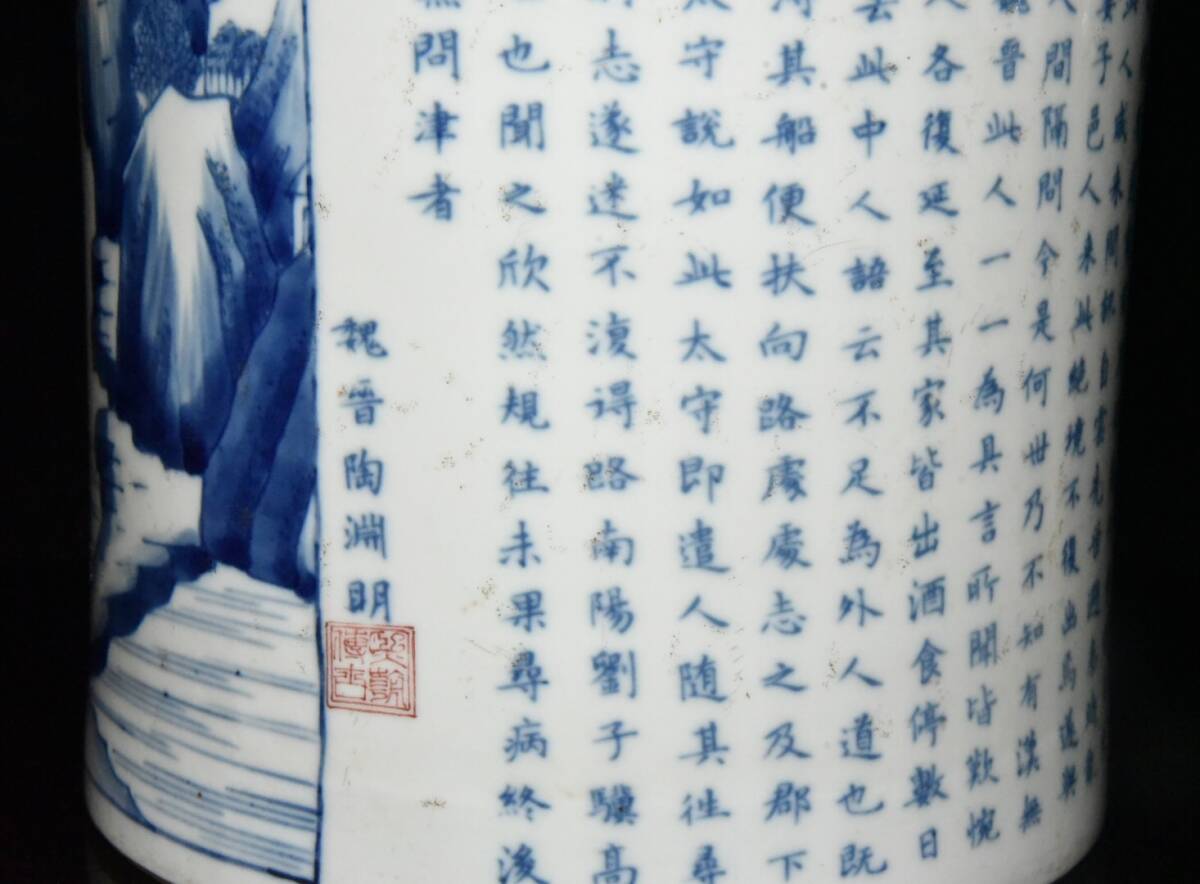 人咸來問訊自雲先世避秦時亂
妻子邑人來此絶境不復出焉遂與
人間隔問今是何世乃不知有漢無
魏晉此人一一為具言所聞皆歎惋
人各復延至其家皆出酒食停數日
去此中人語云不足為外人道也既
得其船便扶向路處處志之及郡下
太守說如此太守即遣人随其往尋
所志遂迷不復得路南陽劉子驥高
士也聞之欣然規往未果尋病終後
無問津者
魏晉陶淵明